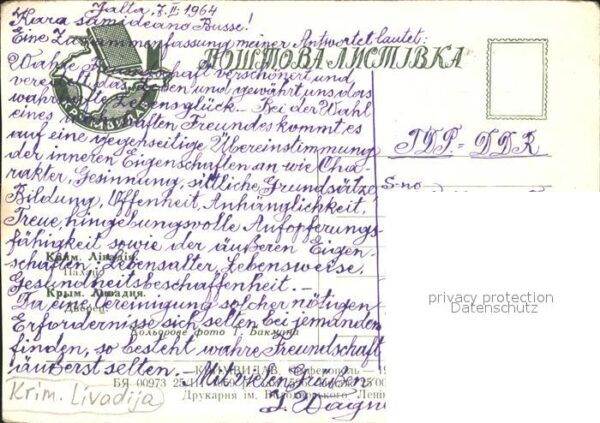 Jalta, 7. II. 1964
Kara samideano Busse!
Eine Zusammenfassung meiner Antwort lautet:
Wahre schaft verschönert und
das Leben und gewährt uns das
wahr Lebensglück. – Bei der Wahl
eines haften Freundes kommt es
auf eine gegenseitige Übereinstimmung
der inneren Eigenschaften an wie Cha-
rakter, Gesinnung, sittliche Grundsätze,
Bildung, Offenheit, Anhänglichkeit,
Treue, hingebungsvolle Aufopferungs-
fähigkeit sowie der äußeren Eigen-
schaften: Lebensalter, Lebensweise,
Gesundheitsbeschaffenheit. –
Da eine Vereinigung solcher nötigen
Erfordernisse sich selten bei jemandem
finden, so besteht wahre Freundschaft
äußerst selten. – Mit vielen Grüßen
ПОШТОВА ЛИСТІВКА
DDR
S-no
Крим. Лівадія.
Палац.
Крым. Ливадия.
Дворец.
Кольорове фото Т. Бакмана
БЯ 00973 25
Друкарня ім.
Krim. Livadija
privacy protection
Datenschutz